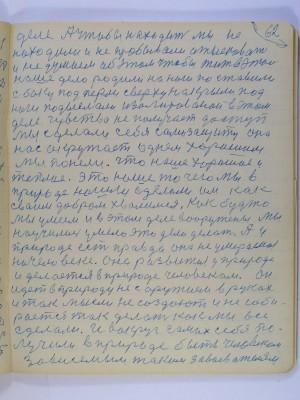 62
деле А чтобы находить мы не
находили и не пробывали отыскать
и не думаем об этом чтобы жить в этом
наше дело родили на ноги поставили
с боку подперли сверху накрыли под
ноги подослали изолирований в этом
деле чувства не получает доступ
Мы сделали себя самозащиту она
нас окружает одним хорошим
Мы поняли. что наше хорошее и
теплое. Это наше то чего мы в
природе нашли и сделали им как
своим добром хвалимся, как будто
мы умеем и в этом деле вооружены мы
научились умело это дело делать. А у
природе есть правда она не умирала
на человеке. Она развита у природе
и делается в природе человеком. Он
идет в природу не с оружием в руках
и так мысли не создают и не соби-
рается так делать как мы все
сделали. И вокруг самих себя по-
лучили в природе быть человеком
зависемым таким завоевателем